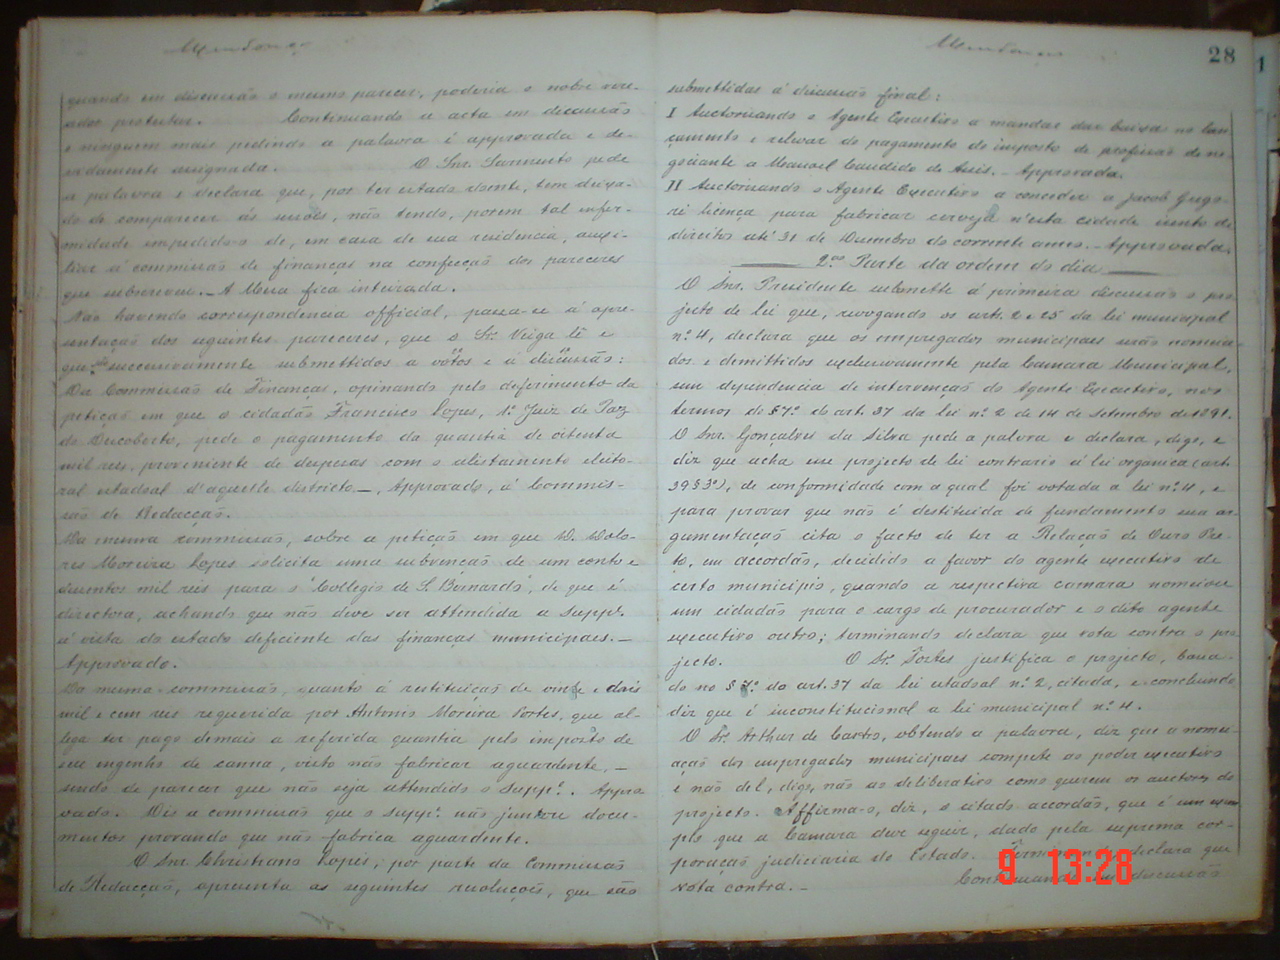 Mendonça
quando em discussão o mesmo parecer, poderia o nobre vere-
ador protestar. Continuando a acta em discussão
e ninguem mais pedindo a palavra é approvada e de-
vidamente assignada. O Snr. Sarmento pede
a palavra e declara que, por ter estado doente, tem deixa-
do de comparecer ás sessões, não tendo, porem tal enfer-
midade impedido-o de, em casa de sua residencia, auxi-
liar á commissão de finanças na confecção dos pareceres
que subscreveu. — A Mesa fica inteirada.
Não havendo correspondencia official, passa-se á apre-
sentação dos seguintes pareceres, que o Sr. Veiga lê e
que são successivamente submettidos a votos e á discussão:
Da Commissão de Finanças, opinando pelo deferimento da
petição em que o cidadão Francisco Lopes, 1º Juiz de Paz
do Descoberto, pede o pagamento da quantia de oitenta
mil reis, proveniente de despesas com o alistamento eleito-
ral estadoal d'aquelle districto —, Approvado, á Commis-
são de Redacção.
Da mesma commissão, sobre a petição em que D. Dolo-
res Moreira Lopes solicita uma subvenção de um conto e
duzentos mil reis para o "Collegio de S. Bernardo", de que é
directora, achando que não deve ser attendida a suppe.
á vista do estado deficiente das finanças municipaes. —
Approvado.
Da mesma commissão, quanto á restituição de vinte e dois
mil e cem reis requerida por Antonio Moreira Portes, que al-
lega ter pago demais a referida quantia pelo imposto de
seu engenho de canna, visto não fabricar aguardente, —
sendo de parecer que não seja attendido o suppe. Appro-
vado. Diz a commissão que o suppe. não juntou docu-
mentos provando que não fabrica aguardente.
O Snr. Christiano Lopes, por parte da Commissão
de Redacção, apresenta as seguintes resoluções, que são
Mendonça
28
submettidas á discussão final:
I Auctorisando o Agente Executivo a mandar dar baixa no lan-
çamento e relevar do pagamento do imposto de profissão de ne-
gociante a Manoel Candido de Assis. — Approvada.
II Auctorisando o Agente Executivo a conceder a Jacob Grego-
ri licença para fabricar cerveja n'esta cidade isento de
direitos até 31 de Dezembro do corrente anno. — Approvada.
2ª Parte da ordem do dia
O Snr. Presidente submette á primeira discussão o pro-
jecto de lei que, revogando os arts. 2 e 25 da lei municipal
nº 4, declara que os empregados municipaes serão nomea-
dos e demittidos exclusivamente pela Camara Municipal,
sem dependencia de intervenção do Agente Executivo, nos
termos do § 7º do art. 37 da lei nº 2 de 14 de Setembro de 1891.
O Snr. Gonçalves da Silva pede a palavra e declara, digo, e
diz que acha esse projecto de lei contrario á lei organica (art.
39 § 3º), de conformidade com a qual foi votada a lei nº 4, e
para provar que não é destituida de fundamento sua ar-
gumentação cita o facto de ter a Relação de Ouro Pre-
to, em accordão, decidido a favor do agente executivo de
certo municipio, quando a respectiva camara nomeiou
um cidadão para o cargo de procurador e o dito agente
executivo outro; terminando declara que vota contra o pro-
jecto. O Sr. Fortes justifica o projecto, basea-
do no § 7º do art. 37 da lei estadoal nº 2, citada, e concluindo
diz que é inconstitucional a lei municipal nº 4.
O Sr. Arthur de Castro, obtendo a palavra, diz que a nome-
ação dos empregados municipaes compete ao poder executivo
e não del, digo, não ao deliberativo como querem os auctores do
projecto. Affirma-o, diz, o citado accordão, que é um exem-
plo que a Camara deve seguir, dado pela suprema cor-
poração judiciaria do Estado. Terminando declara que
vota contra. — Continuando em discussão
9 13:28